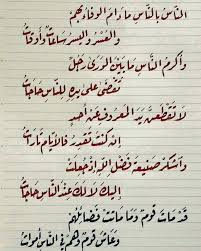 الناس بالناس ما دام الوفاء بهم
والعسر واليسر ساعات وأوقات
وأكرم الناس ما بين الورى رجل
تقضى على يده للناس حاجات
لا تقطعن يد المعروف عن أحد
إن كنت تقدر فالأيام تارات
واشكر صنيعة فضل الله إذ جعلت
إليك لا لك عند الناس حاجات
قد مات قوم وما ماتت فضائلهم
وعاش قوم وهم في الناس أموات